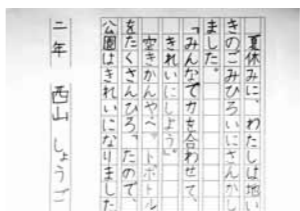 夏休みに、わたしは地い
きのごみひろいにさんかし
ました。
「みんなで力を合わせて、
きれいにしよう。」
空きかんやペットボトル
をたくさんひろったので、
公園はきれいになりました
二年 西山 しょうご